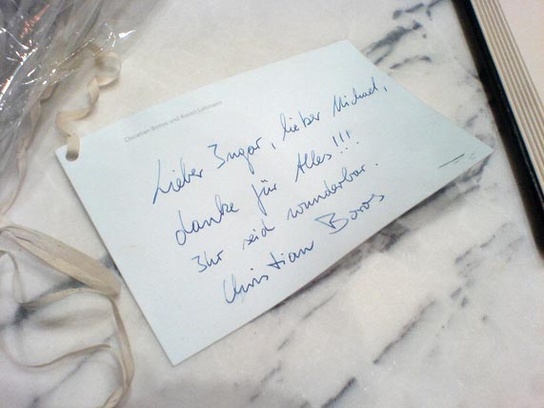 Christian Boros und Karen Lohmann
Lieber Ingar, lieber Michael,
danke für Alles!!!
Ihr seid wunderbar.
Christian Boros